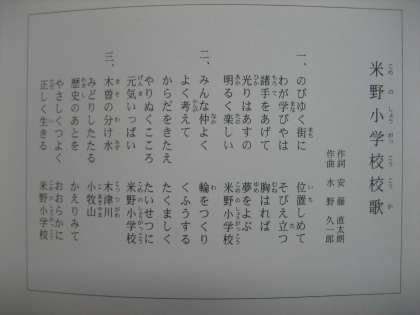 米野小学校校歌
作詞 安藤直太朗
作曲 水野久一郎
一、のびゆく街に 位置しめて
わが学びやは そびえ立つ
諸手をあげて 胸はれば
光りはあすの 夢をよぶ
明るく楽しい 米野小学校
二、みんな仲よく 輪をつくり
よく考えて くふうする
からだをきたえ たくましく
やりぬくこころ たいせつに
元気いっぱい 米野小学校
三、木曽の分け水 木津川
みどりしたたる 小牧山
歴史のあとを かえりみて
やさしくつよく おおらかに
正しく生きる 米野小学校